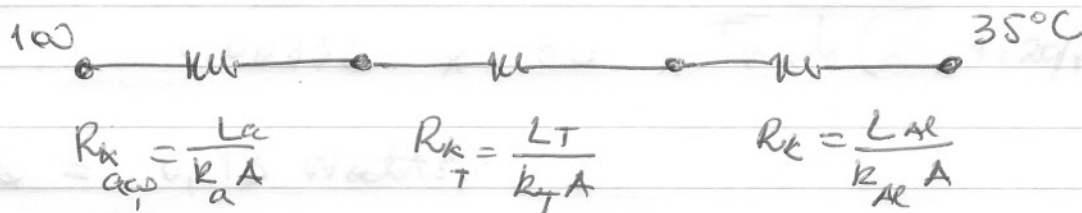 100 35°C
R_k aço = La / k_a A R_k T = LT / k_T A R_k = L Al / k_Al A